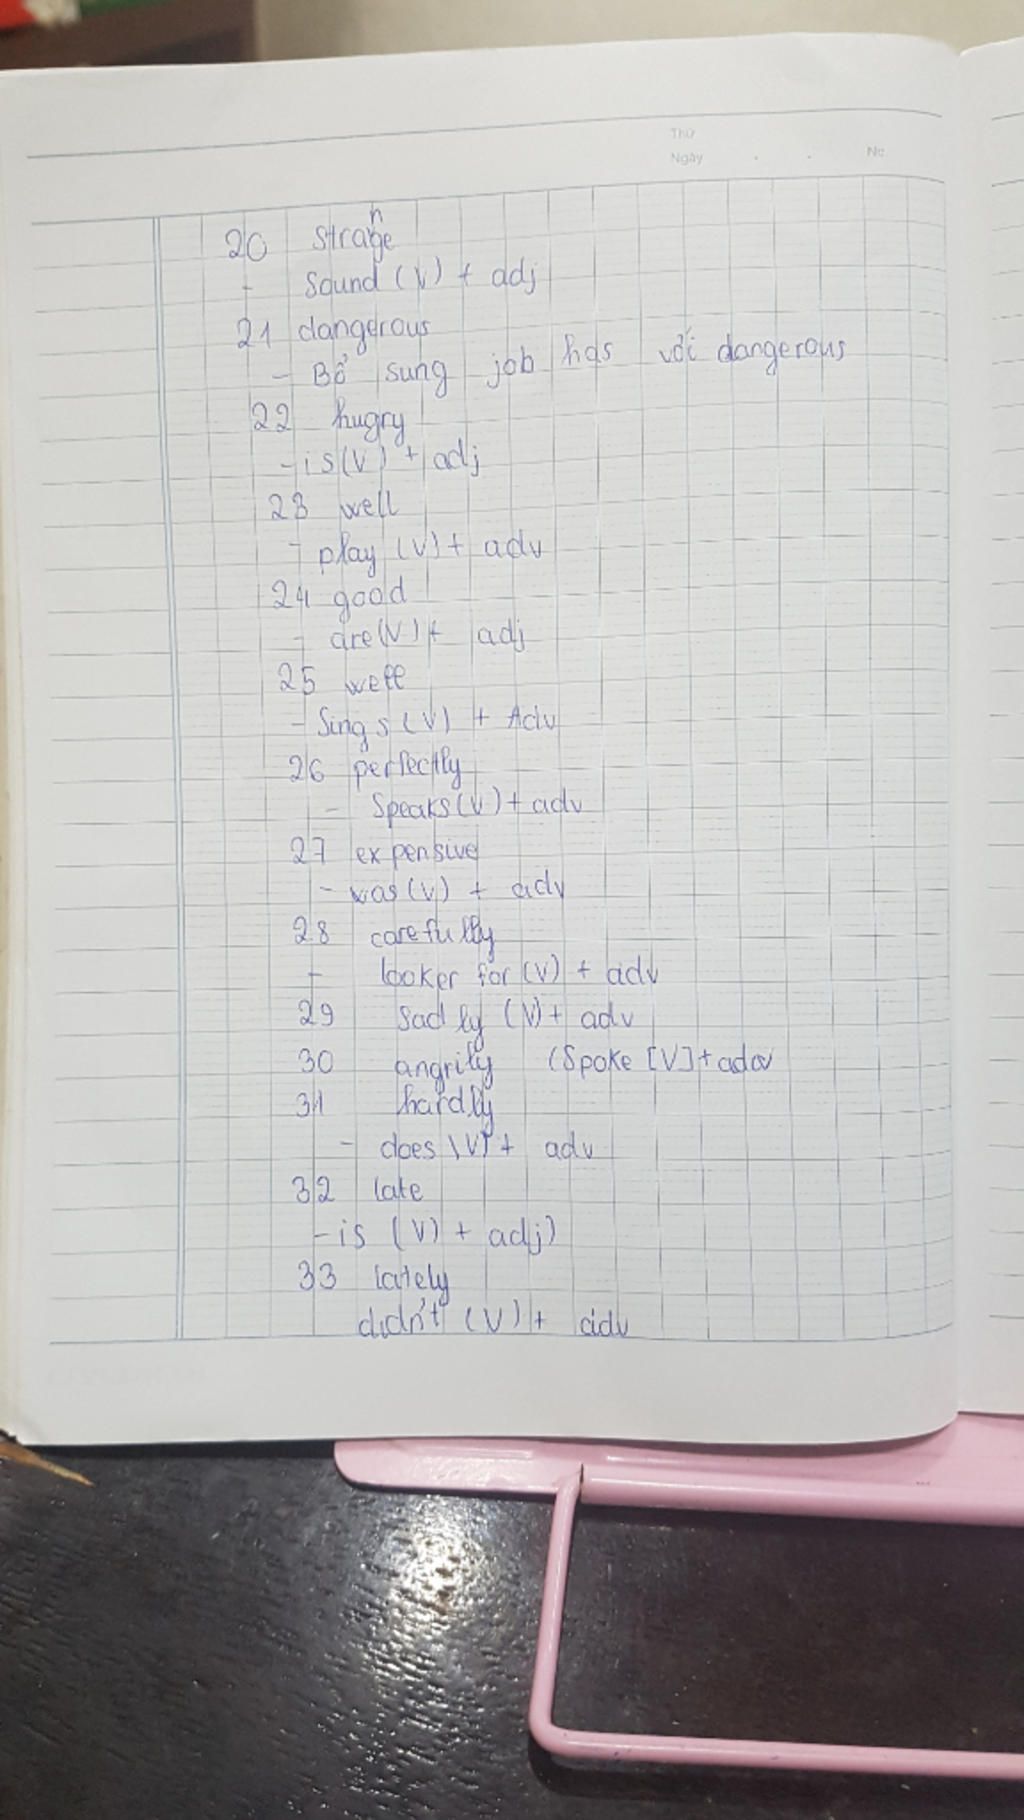 Thứ
Ngày . . No
20 strange
- Sound (V) + adj
21 dangerous
- Bổ sung job has với dangerous
22 hugry
- is (V) + adj
23 well
- play (V) + adv
24 good
- are (V) + adj
25 well
- Sings (V) + Adv
26 perfectly
- Speaks (V) + adv
27 expensive
- was (V) + adv
28 carefully
- looker for (V) + adv
29 sadly (V) + adv
30 angrily (Spoke [V] + adv
31 hardly
- does (V) + adv
32 late
- is (V) + adj)
33 lately
didn't (V) + adv